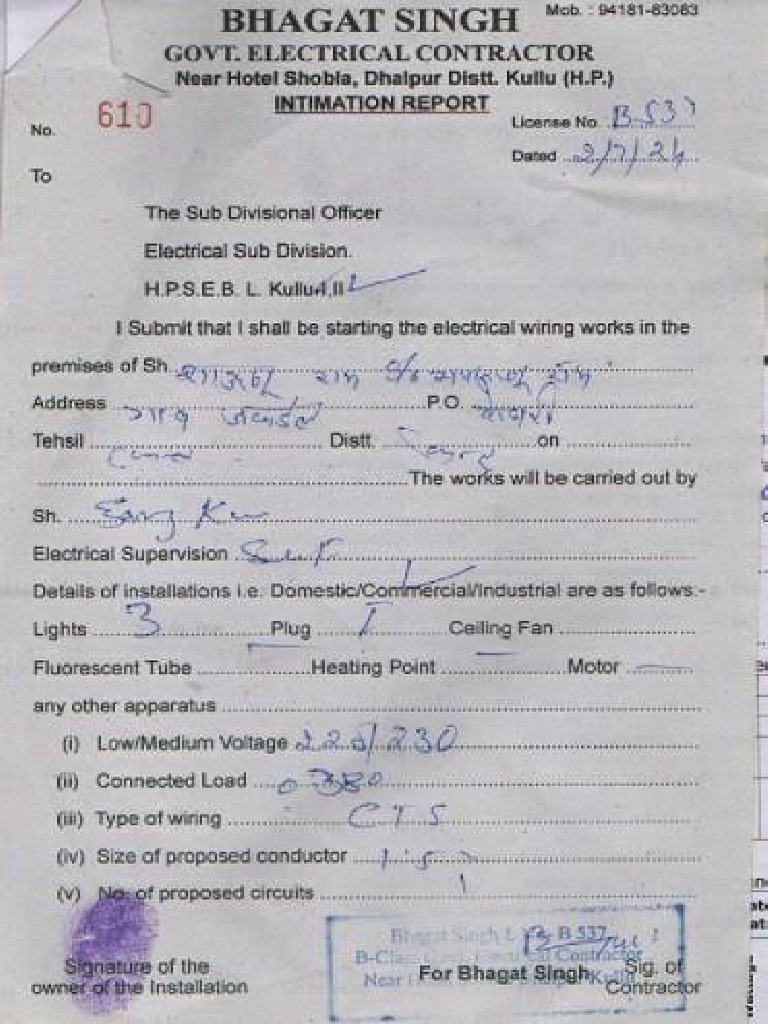 Mob. : 94181-83083
BHAGAT SINGH
GOVT. ELECTRICAL CONTRACTOR
Near Hotel Shobla, Dhalpur Distt. Kullu (H.P.)
INTIMATION REPORT
No. 610
License No. B-537
Dated 2/7/24
To
The Sub Divisional Officer
Electrical Sub Division.
H.P.S.E.B. L. Kullu-I,II
I Submit that I shall be starting the electrical wiring works in the
premises of Sh. राम S/o राम
Address गांव P.O.
Tehsil Distt. on
The works will be carried out by
Sh.
Electrical Supervision Self
Details of installations i.e. Domestic/Commercial/Industrial are as follows:-
Lights 3 Plug 1 Ceiling Fan
Fluorescent Tube Heating Point Motor
any other apparatus
(i) Low/Medium Voltage 220/230
(ii) Connected Load
(iii) Type of wiring CTS
(iv) Size of proposed conductor 1.5
(v) No. of proposed circuits 1
Bhagat Singh B 537
B-Class Contractor
Near
Signature of the
owner of the Installation
For Bhagat Singh
Sig. of
Contractor